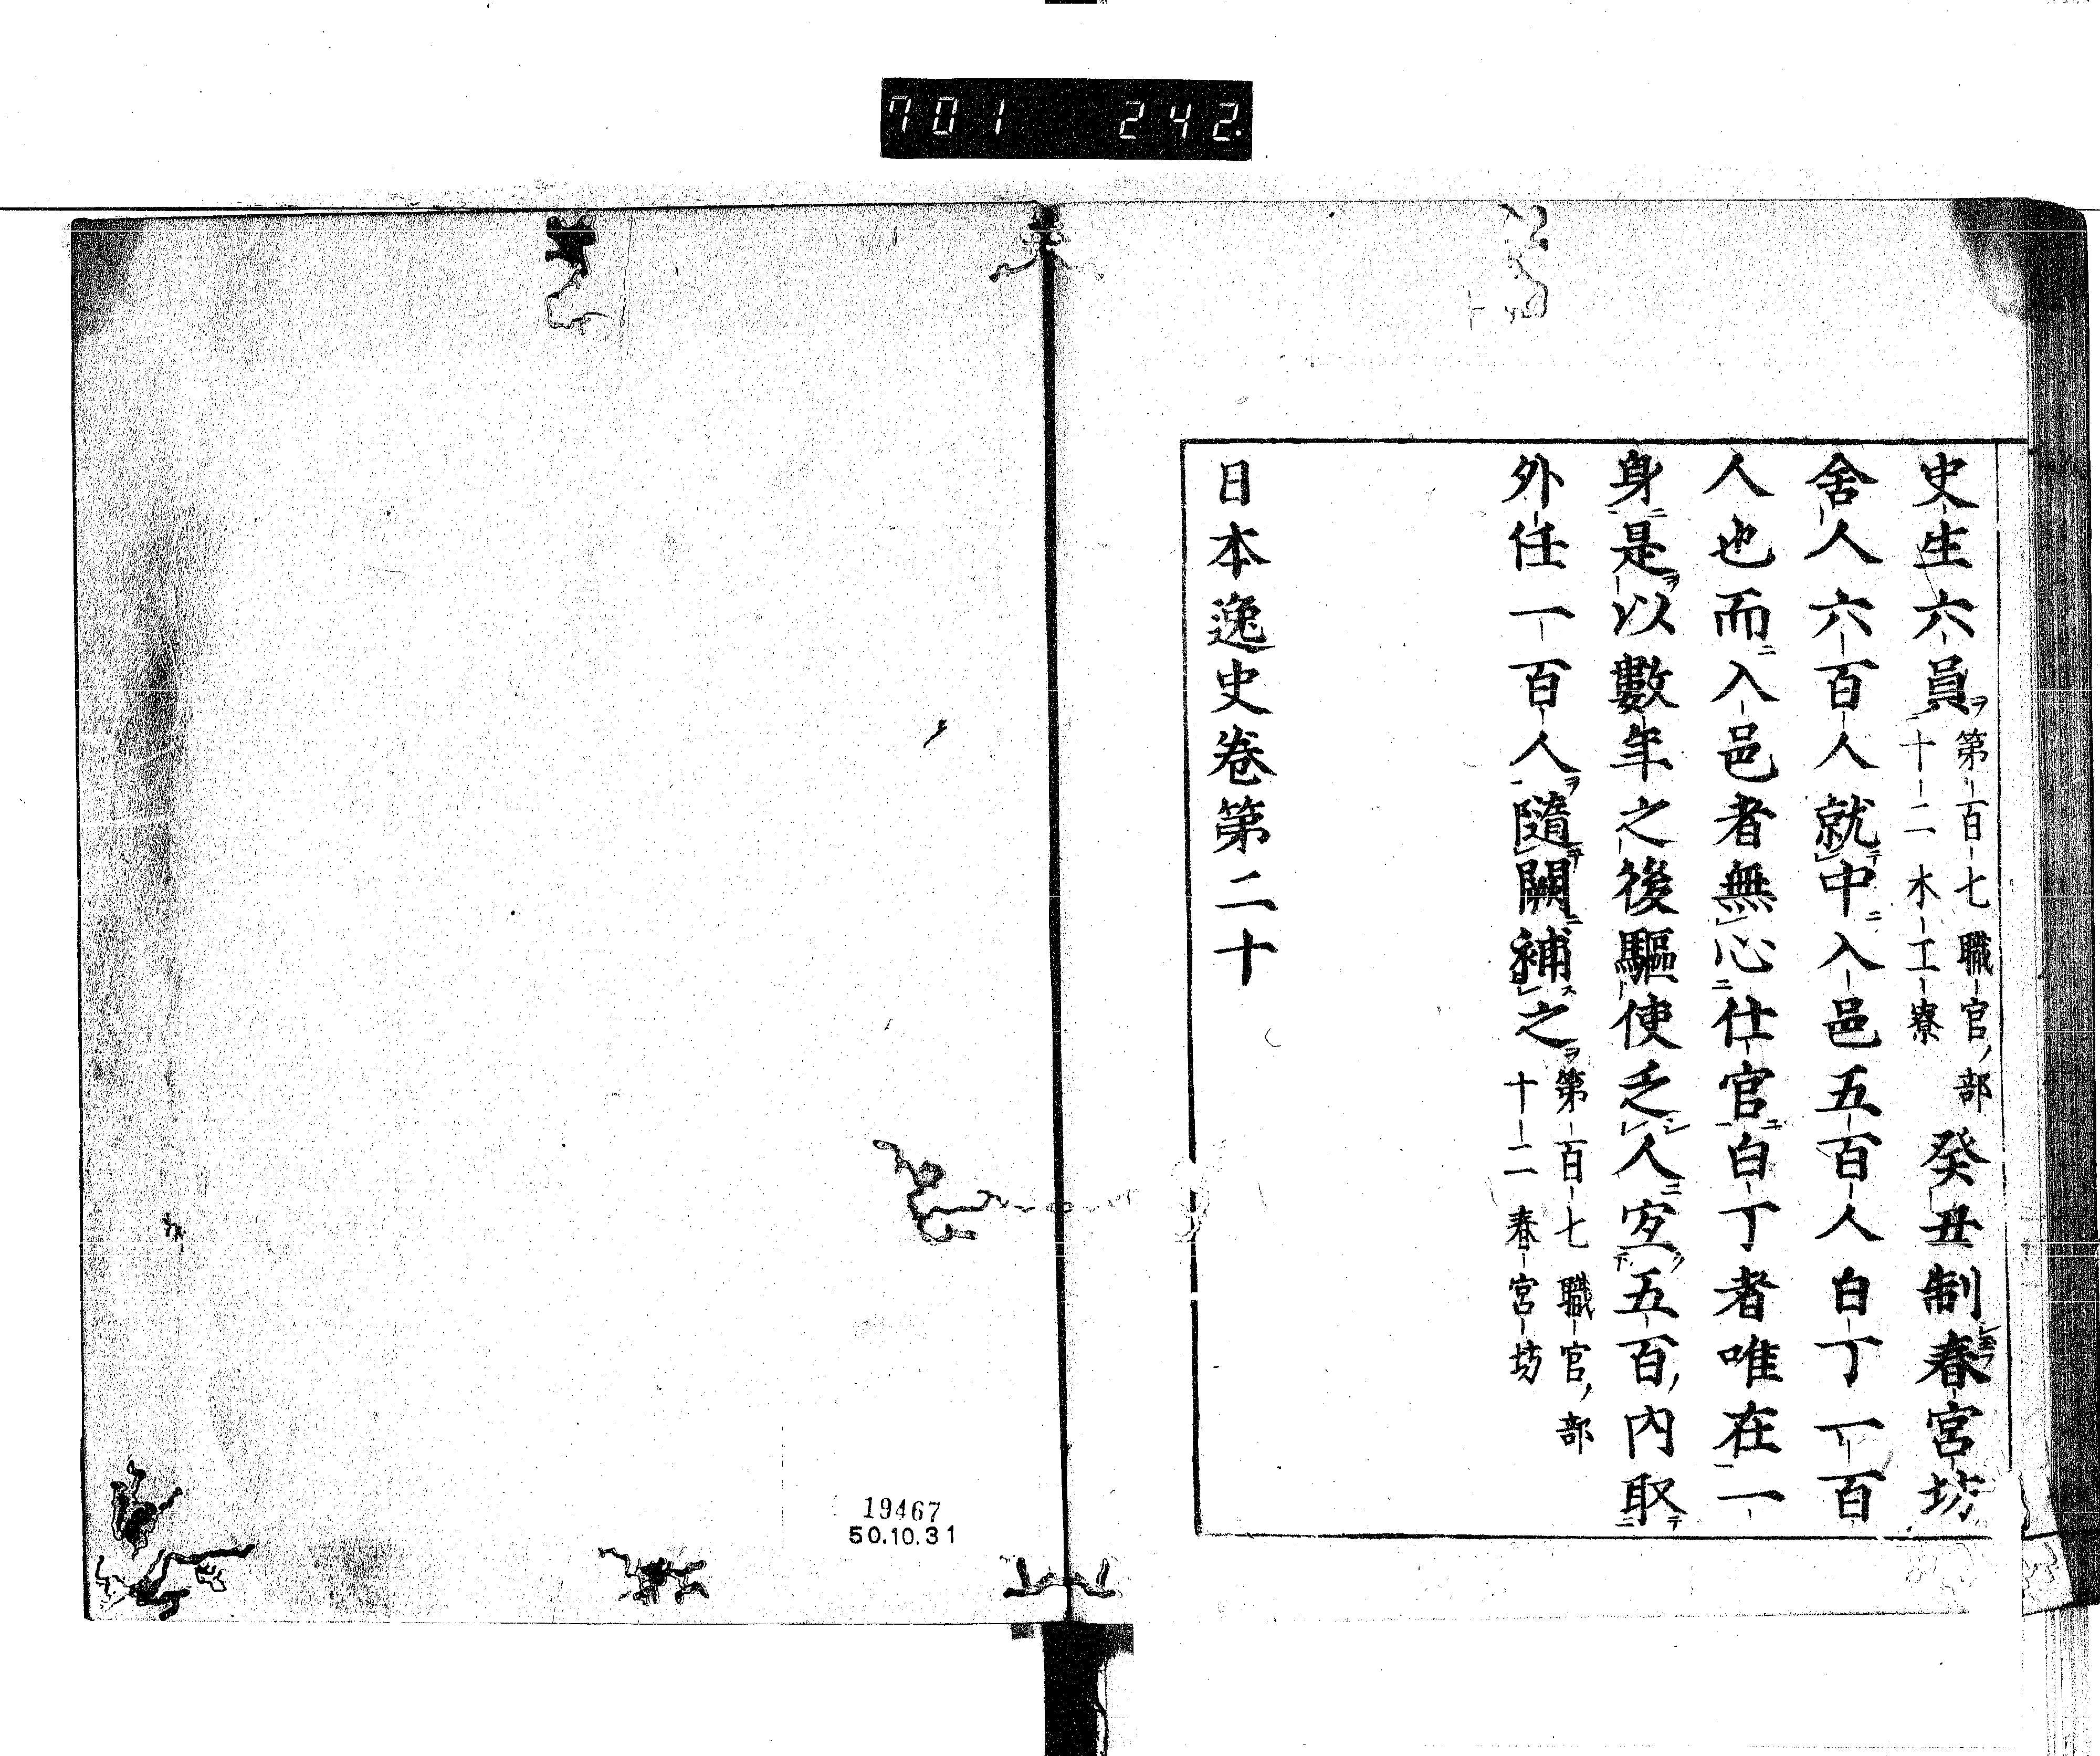 701 242.
史生六員ヲ第百七職官ノ部十二木工寮癸丑制春宮坊
舎人六百人就中入邑五百人白丁一百
人也而入邑者無心仕官白丁者唯在一
身是以數年之後驅使乏人宜五百ノ內取
外任一百人ヲ隨闕補之ヲ第百七職官ノ部十二春宮坊
日本逸史卷第二十
19467
50.10.31